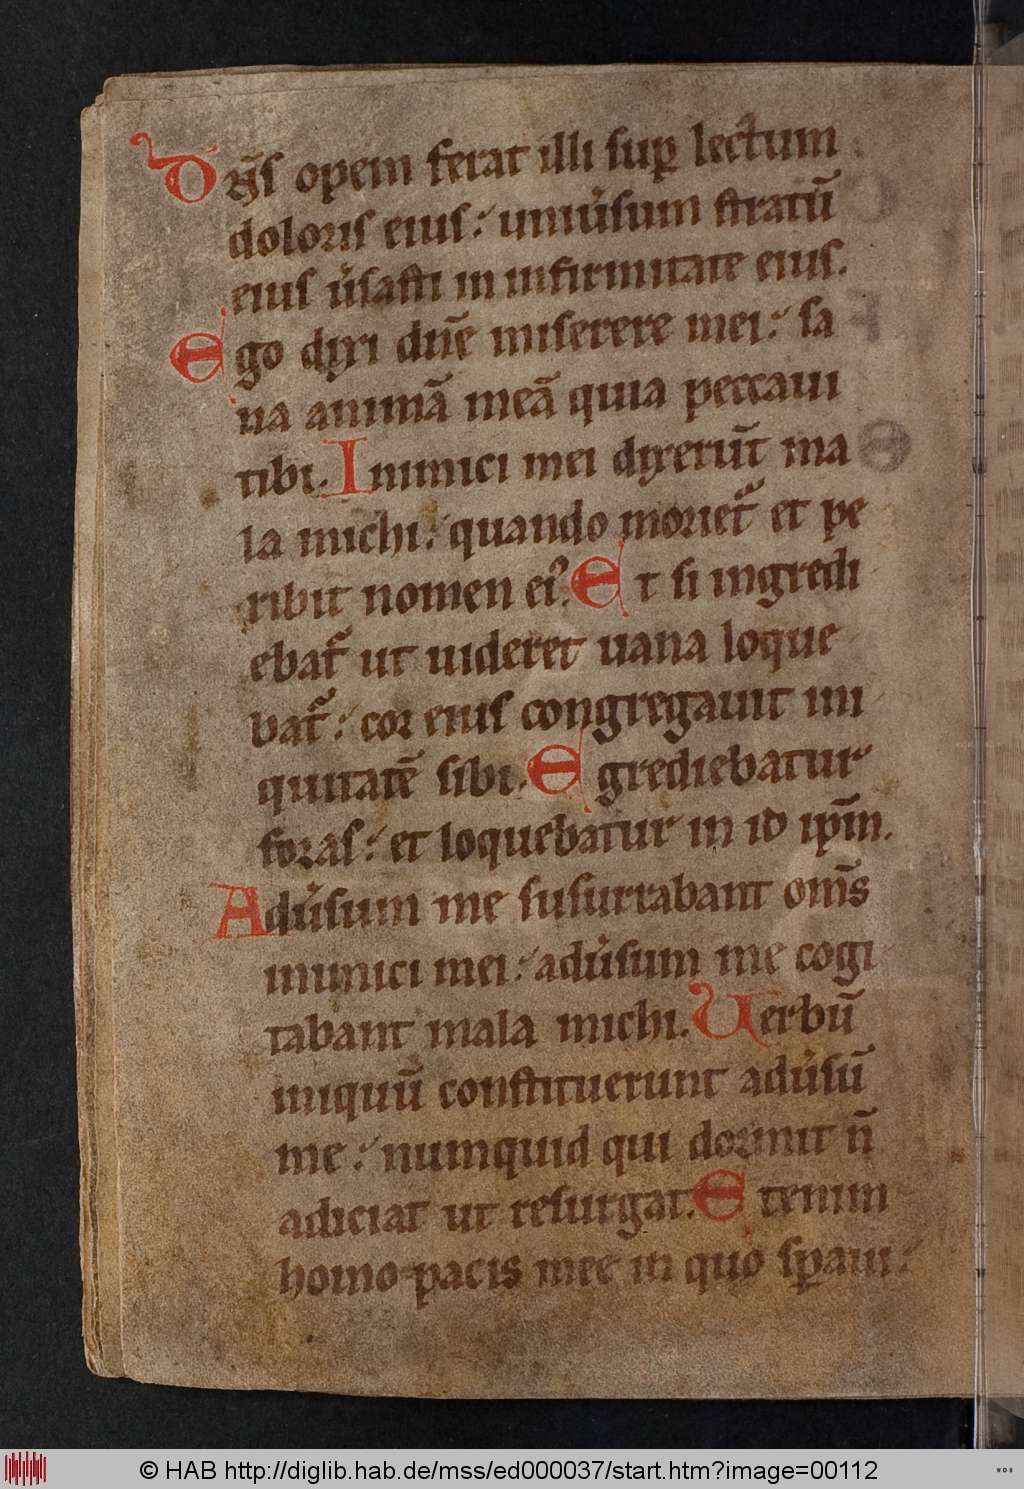 Dn̄s opem ferat illi sup̲ lectum
doloris eius: uniu̾sum stratū
eius u̾sasti in infirmitate eius.
Ego dixi dn̄e miserere mei: sa
na animā meā quia peccaui
tibi. Inimici mei dixerūt ma
la michi: quando morietᷣ et pe
ribit nomen eiꝰ. Et si ingredi
ebatᷣ ut uideret uana loque
batᷣ: cor eius congregauit ini
quitatē sibi. Egrediebatur
foras: et loquebatur in id ip̄m.
Adu̾sum me susurrabant om̄s
inimici mei: adu̾sum me cogi
tabant mala michi. Uerbū
iniquū constituerunt adu̾sū
me: numquid qui dormit n̄
adiciat ut resurgat. Etenim
homo pacis mee in quo sꝑaui:
© HAB http://diglib.hab.de/mss/ed000037/start.htm?image=00112